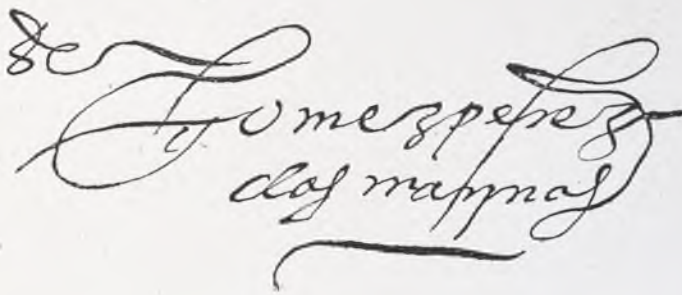 Gomezperez
das marinas